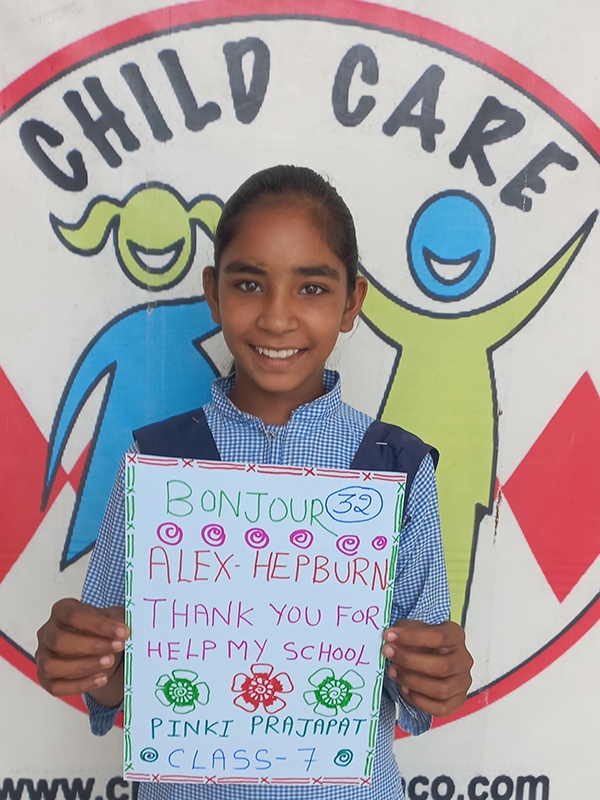 CHILD CARE
BONJOUR 32
ALEX-HEPBURN
THANK YOU FOR
HELP MY SCHOOL
PINKI PRAJAPAT
CLASS-7